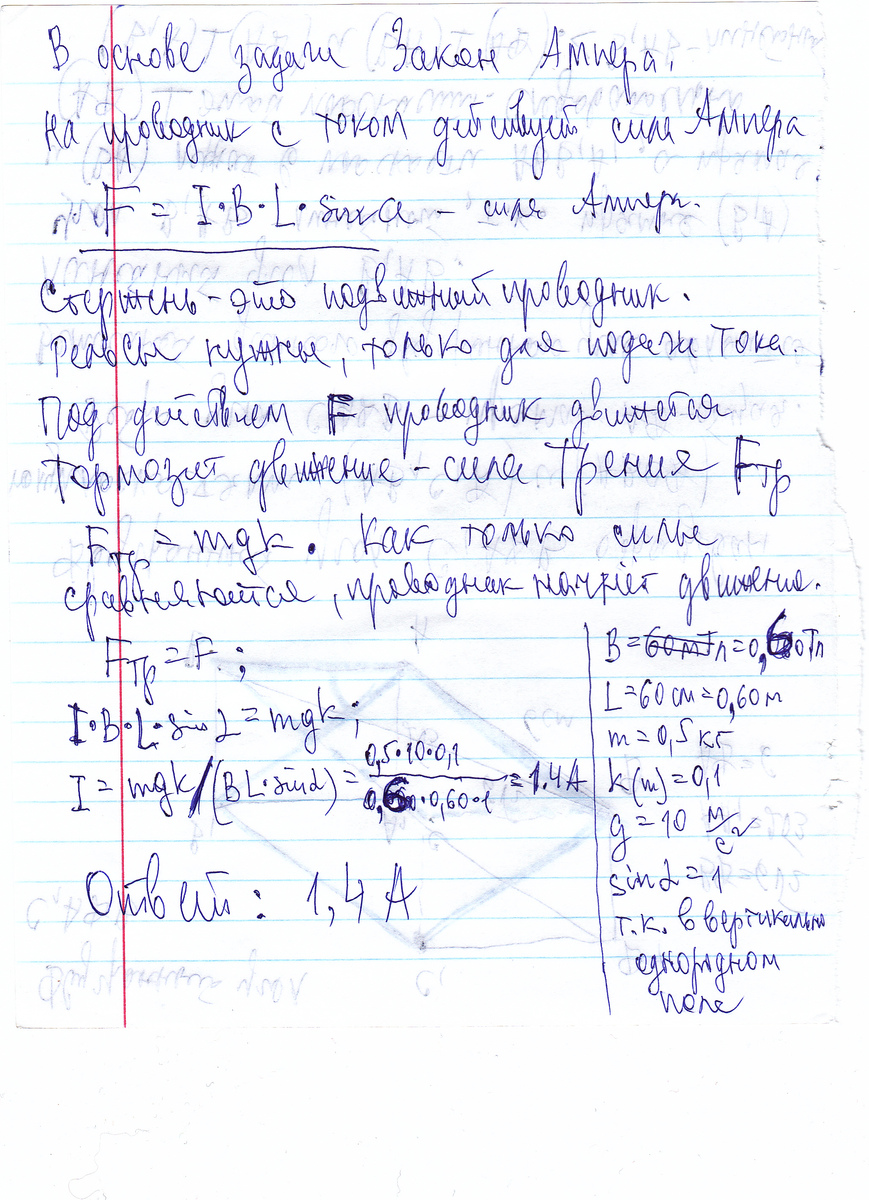 В основе задачи Закон Ампера.
На проводник с током действует сила Ампера
F = I·B·L·sin α - сила Ампера.
Стержень - это подвижный проводник.
Рельсы нужны, только для подачи тока.
Под действием F проводник движется
Тормозит движение - сила Трения Fтр
Fтр = mgk. Как только силы
сравняются, проводник начнёт движение.
Fтр = F.;
I·B·L·sin α = mgk;
I = mgk/(BL·sin α) = 0,5·10·0,1 / 0,60·0,60·1 = 1.4 А
Ответ: 1,4 А
B = 60 мТл = 0,60 Тл
L = 60 см = 0,60 м
m = 0,5 кг
k(m) = 0,1
g = 10 м/с²
sin α = 1
т.к. в вертикально
однородном
поле